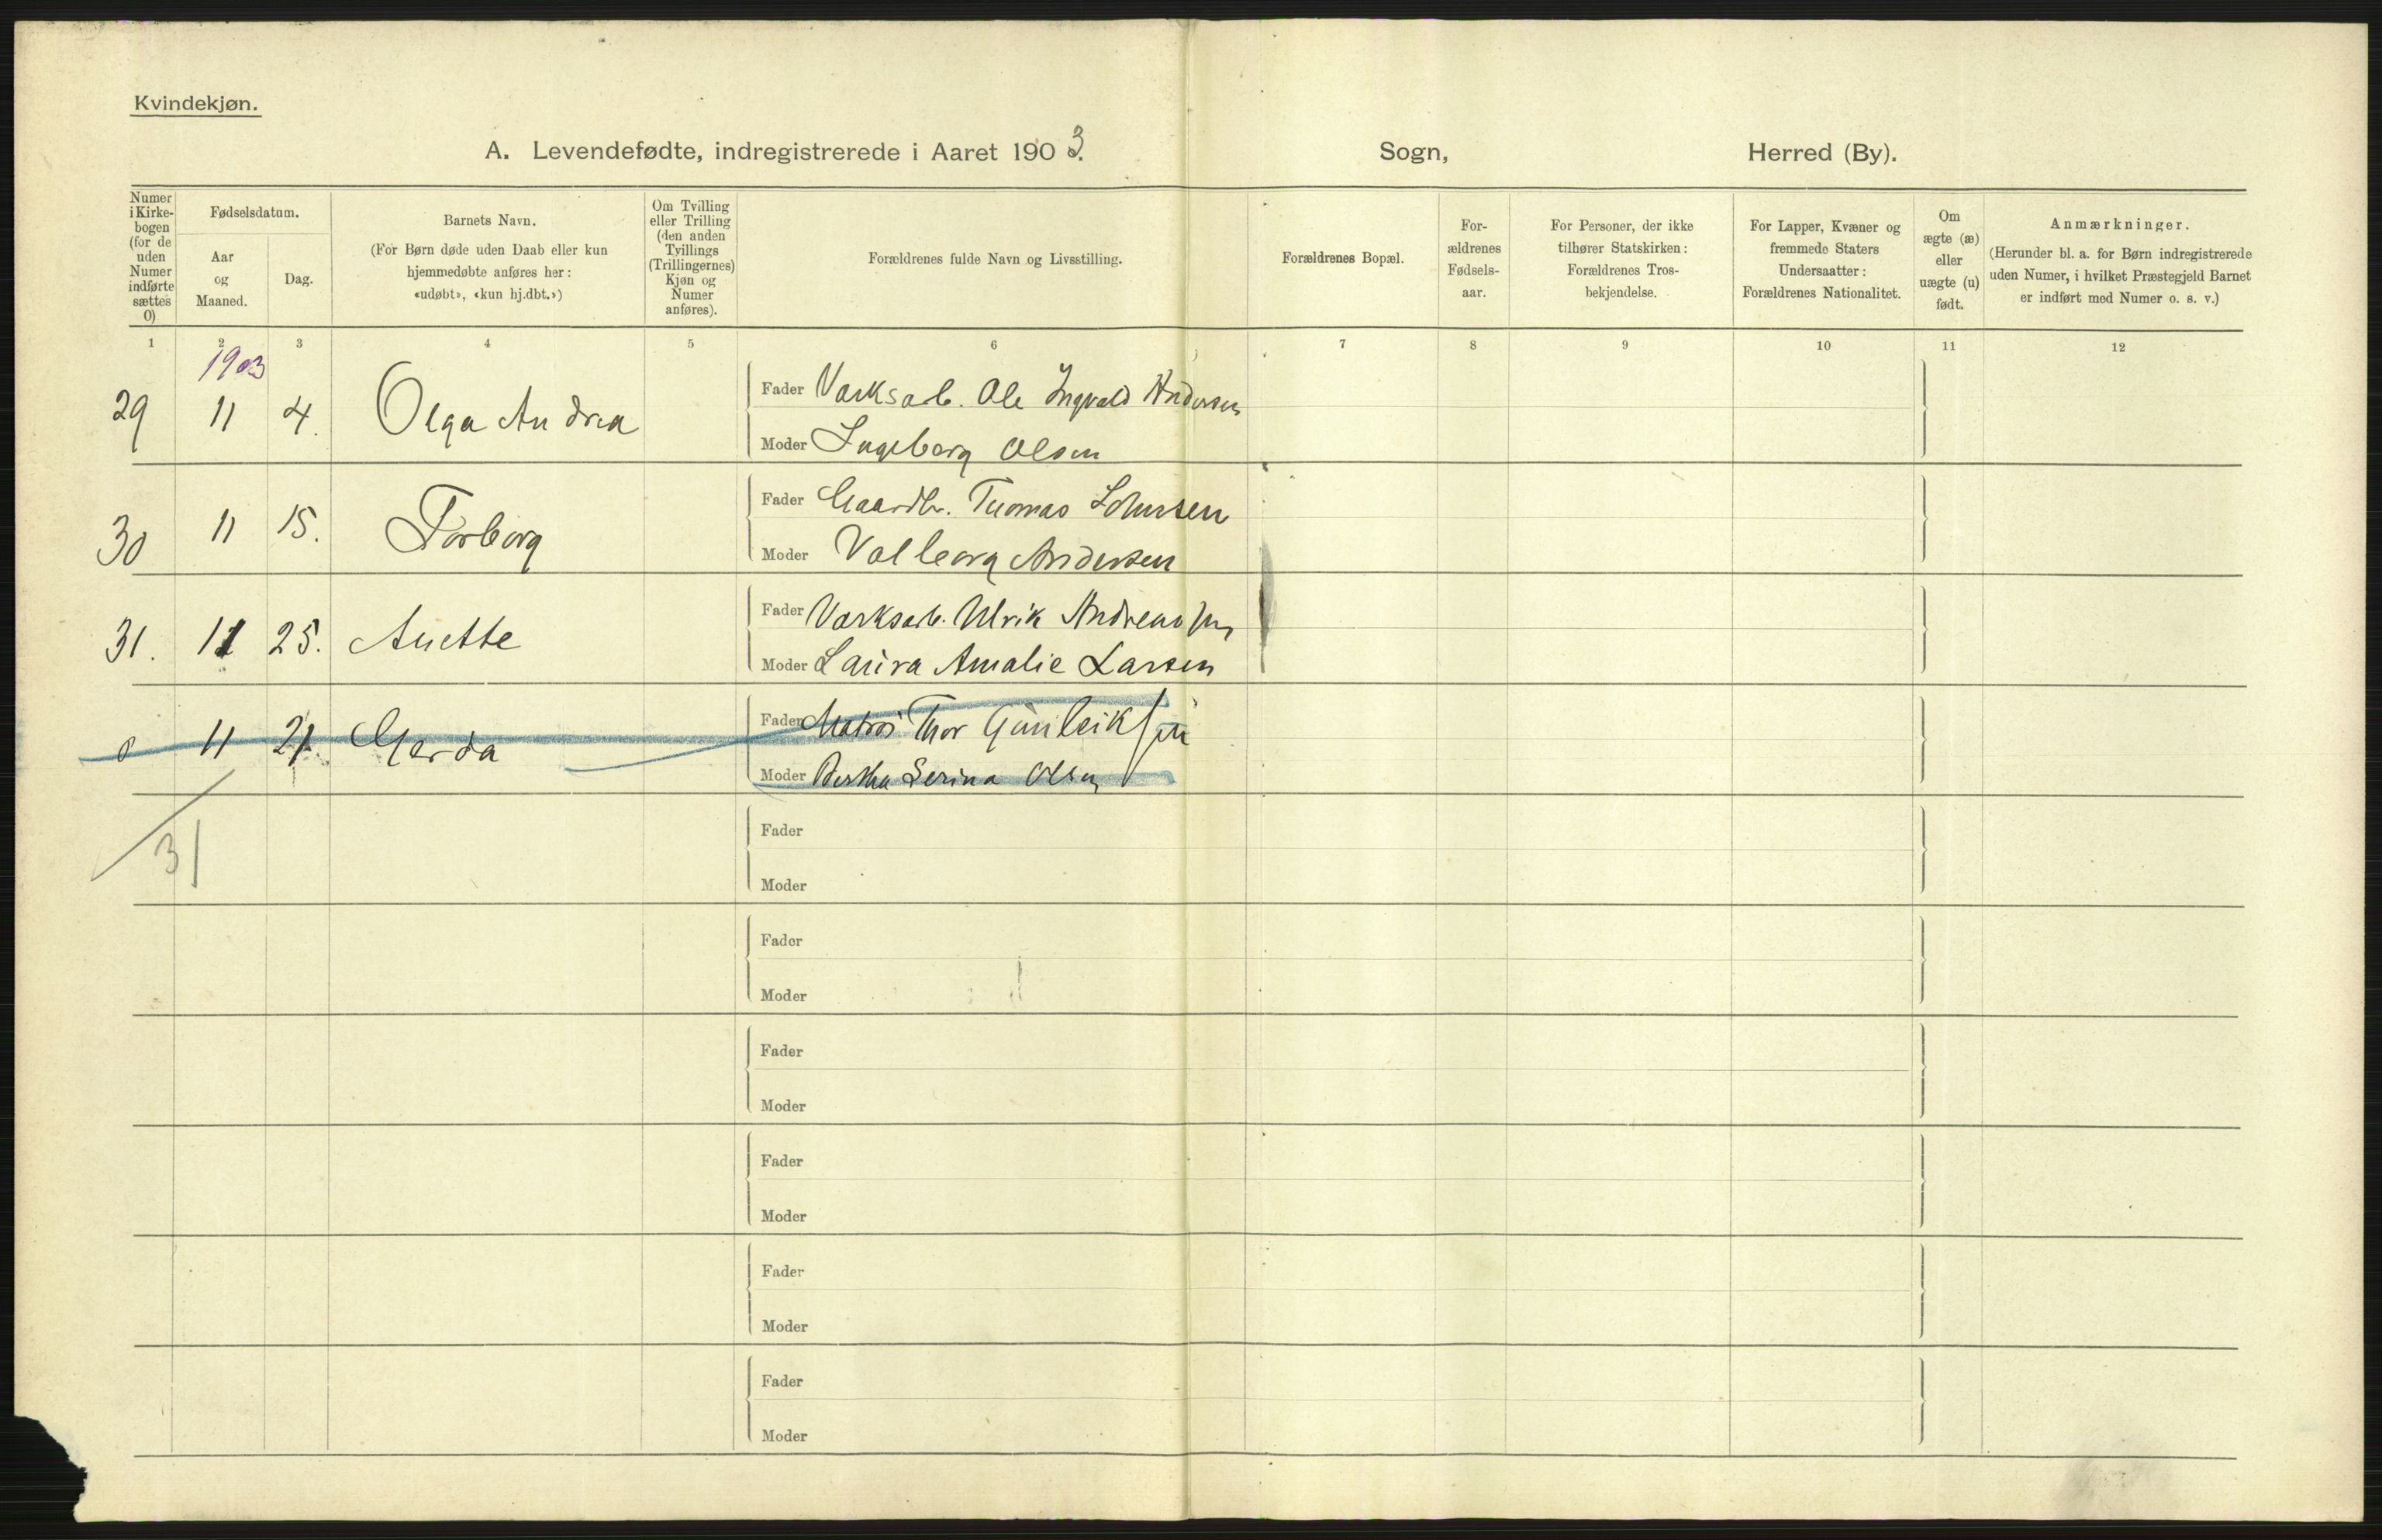 Kvindekjøn.
A. Levendefødte, indregistrerede i Aaret 1903. Sogn, Herred (By).
Numer i Kirke- bogen (for de uden Numer indførte sættes 0)
Fødselsdatum.
Aar og Maaned.
Dag.
Barnets Navn.
(For Børn døde uden Daab eller kun hjemmedøbte anføres her: «udøbt», «kun hj.dbt.»)
Om Tvilling eller Trilling (den anden Tvillings (Trillingernes) Kjøn og Numer anføres).
Forældrenes fulde Navn og Livsstilling.
Forældrenes Bopæl.
For- ældrenes Fødsels- aar.
For Personer, der ikke tilhører Statskirken: Forældrenes Tros- bekjendelse.
For Lapper, Kvæner og fremmede Staters Undersaatter: Forældrenes Nationalitet.
Om ægte (æ) eller uægte (u) født.
Anmærkninger.
(Herunder bl. a. for Børn indregistrerede uden Numer, i hvilket Præstegjeld Barnet er indført med Numer o. s. v.)
1 2 3 4 5 6 7 8 9 10 11 12
1903
29 11 4. Olga Andrea
Fader Værksarb. Ole Ingvald Andersen
Moder Ingeborg Olsen
30 11 15. Torborg
Fader Gaardbr. Thomas Johnsen
Moder Valborg Andersen
31. 11 25. Anette
Fader Værksarb. Ulrik Andreassen
Moder Laura Amalie Larsen
0 11 21. Gerda
Fader Matros Thor Gunleiksen
Moder Bertha Serina Olsen
31
Fader
Moder
Fader
Moder
Fader
Moder
Fader
Moder
Fader
Moder
Fader
Moder